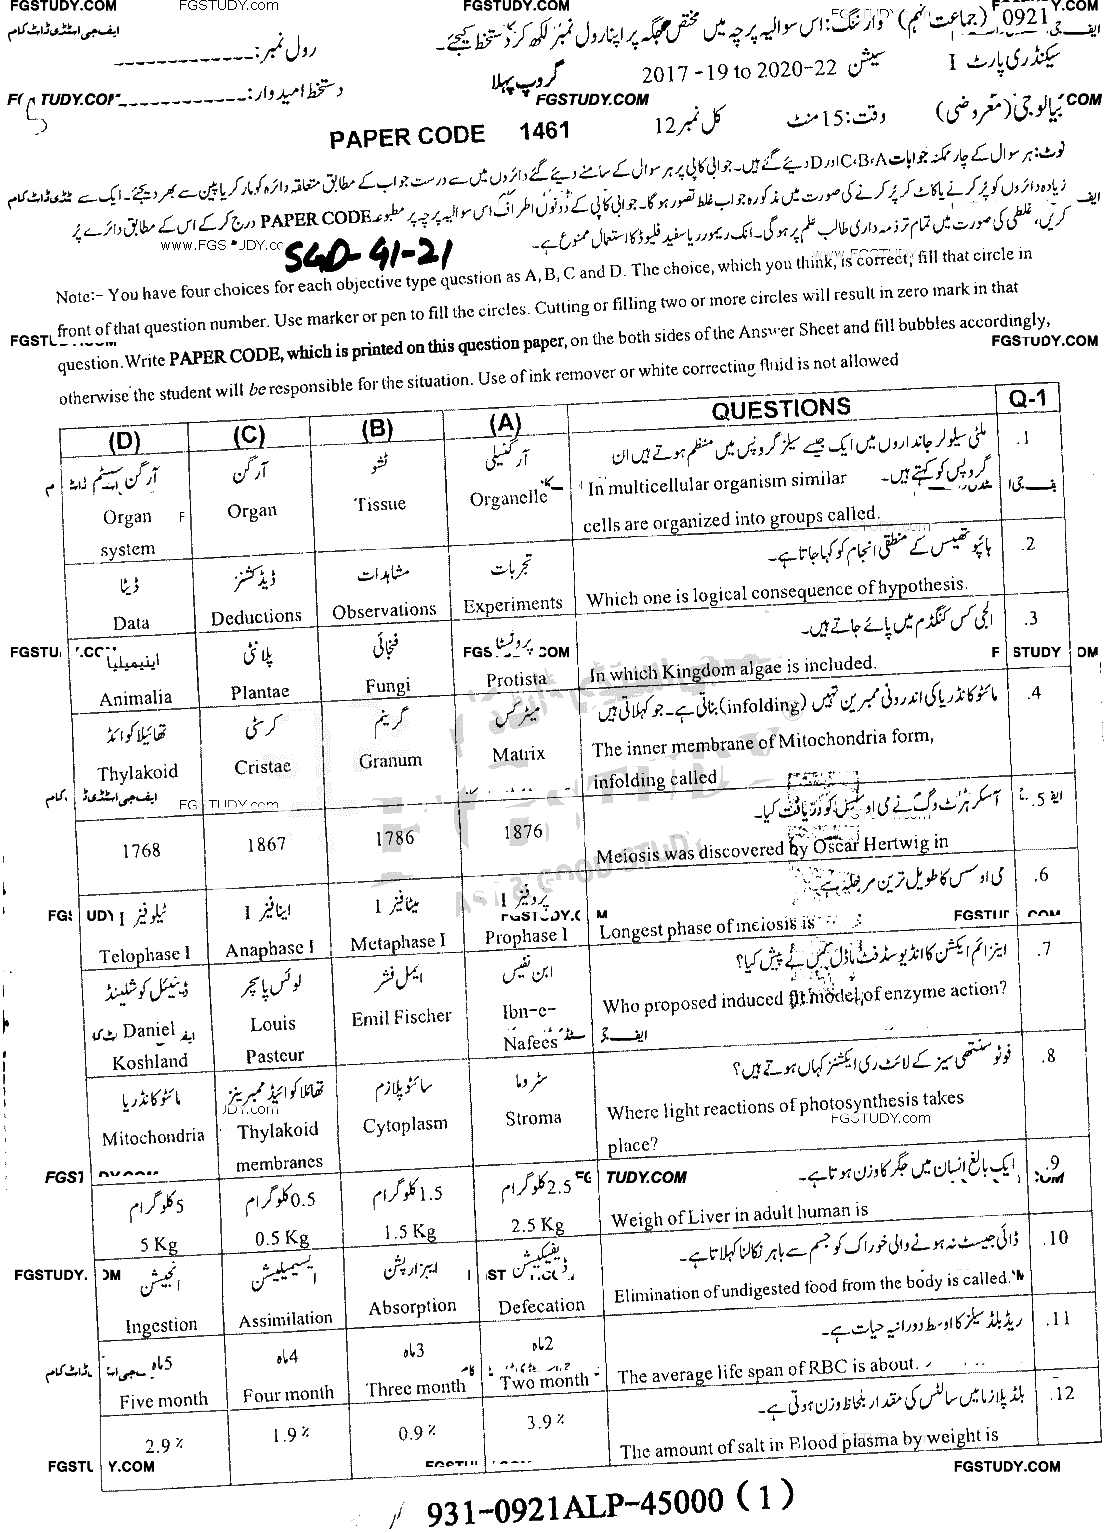 FGSTUDY.COM FGSTUDY.COM FGSTUDY.COM Y.COM
0921 (جماعت نہم) وارننگ: اس سوالیہ پرچہ میں مختص جگہ پر اپنا رول نمبر لکھ کر دستخط کیجئے۔
ایف جی اسٹڈی ڈاٹ کام
رول نمبر:
سیکنڈری پارٹ I سیشن 2017 -19 to 2020-22 گروپ پہلا
FGSTUDY.COM
دستخط امیدوار:
بیالوجی (معروضی) وقت: 15 منٹ کل نمبر 12
PAPER CODE 1461
نوٹ: ہر سوال کے چار ممکنہ جوابات C،B،A اور D دیئے گئے ہیں۔ جوابی کاپی پر ہر سوال کے سامنے دیئے گئے دائروں میں سے درست جواب کے مطابق متعلقہ دائرہ کو مارکر یا پین سے بھر دیجئے۔ ایک سے
زیادہ دائروں کو پُر کرنے یا کاٹ کر پُر کرنے کی صورت میں مذکورہ جواب غلط تصور ہوگا۔ جوابی کاپی کے دونوں اطراف اس سوالیہ پرچہ پر مطبوعہ PAPER CODE درج کر کے اس کے مطابق دائرے پُر
کریں، غلطی کی صورت میں تمام تر ذمہ داری طالب علم پر ہوگی۔ انک ریموور یا سفید فلیوڈ کا استعمال ممنوع ہے۔
SGD-G1-21
Note:- You have four choices for each objective type question as A, B, C and D. The choice, which you think, is correct; fill that circle in
front of that question number. Use marker or pen to fill the circles. Cutting or filling two or more circles will result in zero mark in that
question. Write PAPER CODE, which is printed on this question paper, on the both sides of the Answer Sheet and fill bubbles accordingly,
otherwise the student will be responsible for the situation. Use of ink remover or white correcting fluid is not allowed
(D) (C) (B) (A) QUESTIONS Q-1
آرگن سسٹم آرگن ٹشو آرگنیلی ملٹی سیلولر جانداروں میں ایک جیسے سیلز گروپس میں منظم ہوتے ہیں ان 1.
گروپس کو کہتے ہیں۔
Organ system Organ Tissue Organelle In multicellular organism similar
cells are organized into groups called.
ڈیٹا ڈیڈکشنز مشاہدات تجربات ہائپوتھیسس کے منطقی انجام کو کہا جاتا ہے۔ 2.
Data Deductions Observations Experiments Which one is logical consequence of hypothesis.
اینیمیلیا پلانٹی فنجائی پروٹسٹا الجی کس کنگڈم میں پائے جاتے ہیں۔ 3.
Animalia Plantae Fungi Protista In which Kingdom algae is included.
تھائیلاکوائڈ کرسٹی گرینم میٹرکس مائٹوکانڈریا کی اندرونی ممبرین تہیں (infolding) بناتی ہے۔ جو کہلاتی ہیں 4.
Thylakoid Cristae Granum Matrix The inner membrane of Mitochondria form,
infolding called
آسکر ہرٹ وگ نے می اوسس کو دریافت کیا۔ 5.
1768 1867 1786 1876 Meiosis was discovered by Oscar Hertwig in
ٹیلوفیز I اینافیز I میٹافیز I پروفیز I می اوسس کا طویل ترین مرحلہ ہے 6.
Telophase I Anaphase I Metaphase I Prophase I Longest phase of meiosis is
ڈینیئل کوشلینڈ لوئس پاسچر ایمل فشر ابن نفیس اینزائم ایکشن کا انڈیوسڈ فٹ ماڈل کس نے پیش کیا؟ 7.
Daniel Koshland Louis Pasteur Emil Fischer Ibn-e-Nafees Who proposed induced fit model of enzyme action?
مائٹوکانڈریا تھائلاکوائیڈ ممبرینز سائٹوپلازم سٹروما فوٹوسنتھی سیز کے لائٹ ری ایکشنز کہاں ہوتے ہیں؟ 8.
Mitochondria Thylakoid membranes Cytoplasm Stroma Where light reactions of photosynthesis takes
place?
5 کلوگرام 0.5 کلوگرام 1.5 کلوگرام 2.5 کلوگرام ایک بالغ انسان میں جگر کا وزن ہوتا ہے۔ 9.
5 Kg 0.5 Kg 1.5 Kg 2.5 Kg Weigh of Liver in adult human is
انجیشن ایسیمیلیشن ایبزارپشن ڈیفیکیشن ڈائی جیسٹ نہ ہونے والی خوراک کو جسم سے باہر نکالنا کہلاتا ہے۔ 10.
Ingestion Assimilation Absorption Defecation Elimination of undigested food from the body is called.
5 ماہ 4 ماہ 3 ماہ 2 ماہ ریڈ بلڈ سیلز کا اوسط دورانیہ حیات ہے۔ 11.
Five month Four month Three month Two month The average life span of RBC is about.
بلڈ پلازما میں سالٹس کی مقدار بلحاظ وزن ہوتی ہے۔ 12.
2.9 % 1.9 % 0.9 % 3.9 % The amount of salt in Blood plasma by weight is
FGSTUDY.COM
931-0921ALP-45000 (1)